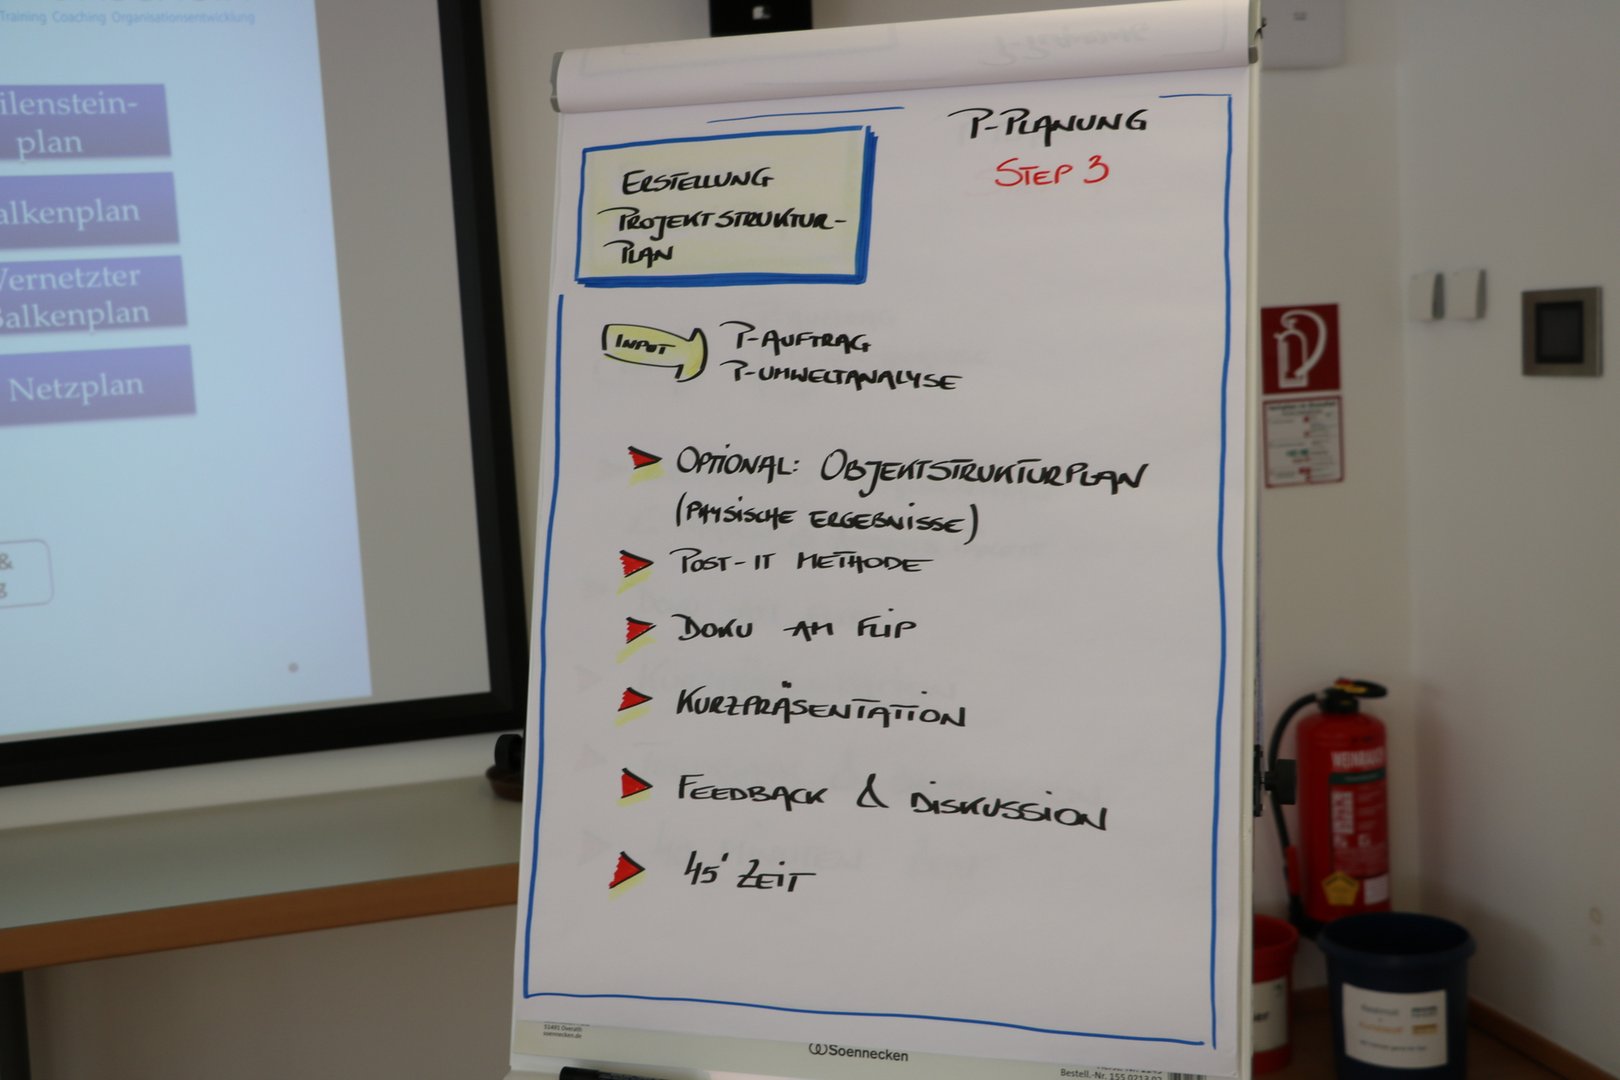 Training Coaching Organisationsentwicklung
ilenstein-
plan
alkenplan
Vernetzter
Balkenplan
Netzplan
&
g
P-PLANUNG
STEP 3
ERSTELLUNG
PROJEKTSTRUKTUR-
PLAN
INPUT
P-AUFTRAG
P-UMWELTANALYSE
OPTIONAL: OBJEKTSTRUKTURPLAN
(PHYSISCHE ERGEBNISSE)
POST-IT METHODE
DOKU AM FLIP
KURZPRÄSENTATION
FEEDBACK & DISKUSSION
45' ZEIT
51491 Overath
soennecken.de
Soennecken
Bestell.-Nr. 155 0713 02